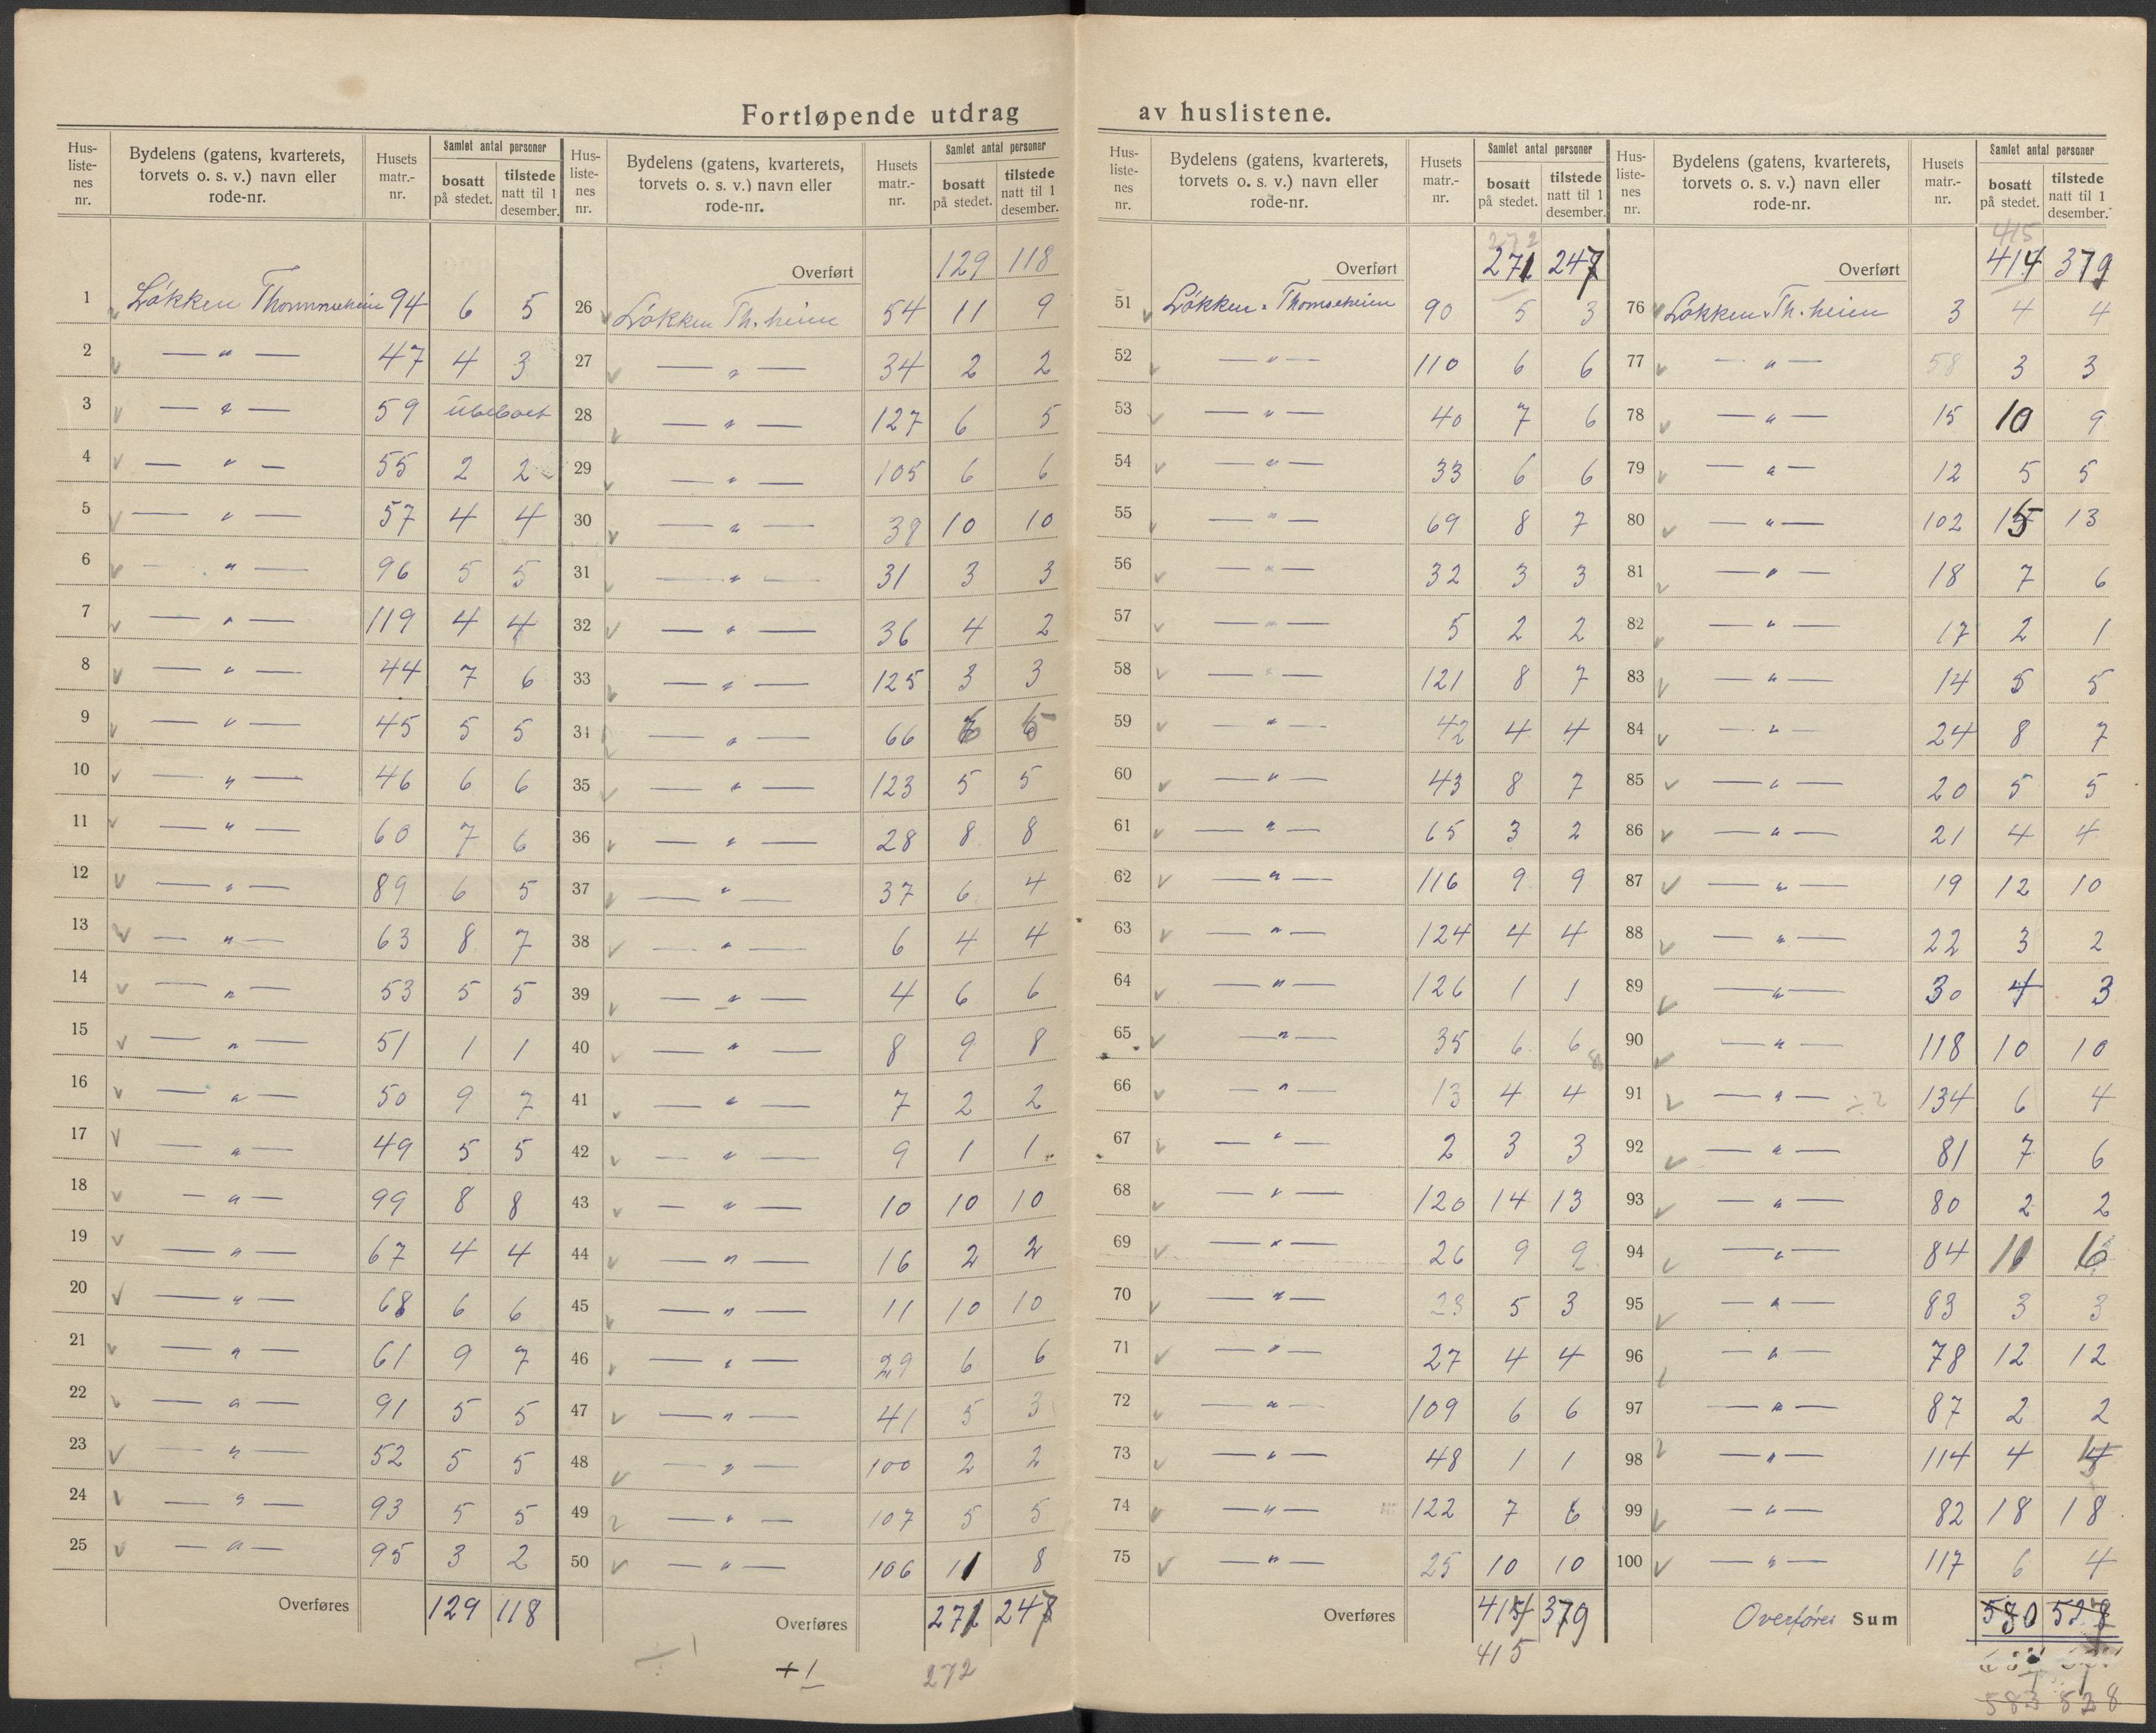 Fortløpende utdrag av huslistene.
Hus-liste-nes nr. | Bydelens (gatens, kvarterets, torvets o. s. v.) navn eller rode-nr. | Husets matr.-nr. | Samlet antal personer bosatt på stedet. | tilstede natt til 1 desember.
1 Løkken Thommeheim 94 6 5
2 — " — 47 4 3
3 — " — 59 ubeboet
4 — " — 55 2 2
5 — " — 57 4 4
6 — " — 96 5 5
7 — " — 119 4 4
8 — " — 44 7 6
9 — " — 45 5 5
10 — " — 46 6 6
11 — " — 60 7 6
12 — " — 89 6 5
13 — " — 63 8 7
14 — " — 53 5 5
15 — " — 51 1 1
16 — " — 50 9 7
17 — " — 49 5 5
18 — " — 99 8 8
19 — " — 67 4 4
20 — " — 68 6 6
21 — " — 61 9 7
22 — " — 91 5 5
23 — " — 52 5 5
24 — " — 93 5 5
25 — " — 95 3 2
Overføres 129 118
Hus-liste-nes nr. | Bydelens (gatens, kvarterets, torvets o. s. v.) navn eller rode-nr. | Husets matr.-nr. | Samlet antal personer bosatt på stedet. | tilstede natt til 1 desember.
Overført 129 118
26 Løkken Th. heim 54 11 9
27 — " — 34 2 2
28 — " — 127 6 5
29 — " — 105 6 6
30 — " — 39 10 10
31 — " — 31 3 3
32 — " — 36 4 2
33 — " — 125 3 3
34 — " — 66 6 5
35 — " — 123 5 5
36 — " — 28 8 8
37 — " — 37 6 4
38 — " — 6 4 4
39 — " — 4 6 6
40 — " — 8 9 8
41 — " — 7 2 2
42 — " — 9 1 1
43 — " — 10 10 10
44 — " — 16 2 2
45 — " — 11 10 10
46 — " — 29 6 6
47 — " — 41 5 3
48 — " — 100 2 2
49 — " — 107 5 5
50 — " — 106 11 8
Overføres 271 247
÷ 1
+1 272
Hus-liste-nes nr. | Bydelens (gatens, kvarterets, torvets o. s. v.) navn eller rode-nr. | Husets matr.-nr. | Samlet antal personer bosatt på stedet. | tilstede natt til 1 desember.
272
Overført 271 247
51 Løkken. Thomseheim 90 5 3
52 — " — 110 6 6
53 — " — 40 7 6
54 — " — 33 6 6
55 — " — 69 8 7
56 — " — 32 3 3
57 — " — 5 2 2
58 — " — 121 8 7
59 — " — 42 4 4
60 — " — 43 8 7
61 — " — 65 3 2
62 — " — 116 9 9
63 — " — 124 4 4
64 — " — 126 1 1
65 — " — 35 6 6
66 — " — 13 4 4
67 — " — 2 3 3
68 — " — 120 14 13
69 — " — 26 9 9
70 — " — 23 5 3
71 — " — 27 4 4
72 — " — 109 6 6
73 — " — 48 1 1
74 — " — 122 7 6
75 — " — 25 10 10
Overføres 414 379
415
Hus-liste-nes nr. | Bydelens (gatens, kvarterets, torvets o. s. v.) navn eller rode-nr. | Husets matr.-nr. | Samlet antal personer bosatt på stedet. | tilstede natt til 1 desember.
415
Overført 414 379
76 Løkken. Th. heim 3 4 4
77 — " — 58 3 3
78 — " — 15 10 9
79 — " — 12 5 5
80 — " — 102 15 13
81 — " — 18 7 6
82 — " — 17 2 1
83 — " — 14 5 5
84 — " — 24 8 7
85 — " — 20 5 5
86 — " — 21 4 4
87 — " — 19 12 10
88 — " — 22 3 2
89 — " — 30 4 3
90 — " — 118 10 10
91 — " — ÷2 134 6 4
92 — " — 81 7 6
93 — " — 80 2 2
94 — " — 84 6
95 — " — 83 3 3
96 — " — 78 12 12
97 — " — 87 2 2
98 — " — 114 4
99 — " — 82 18 18
100 — " — 117 6 4
Overføres Sum 580